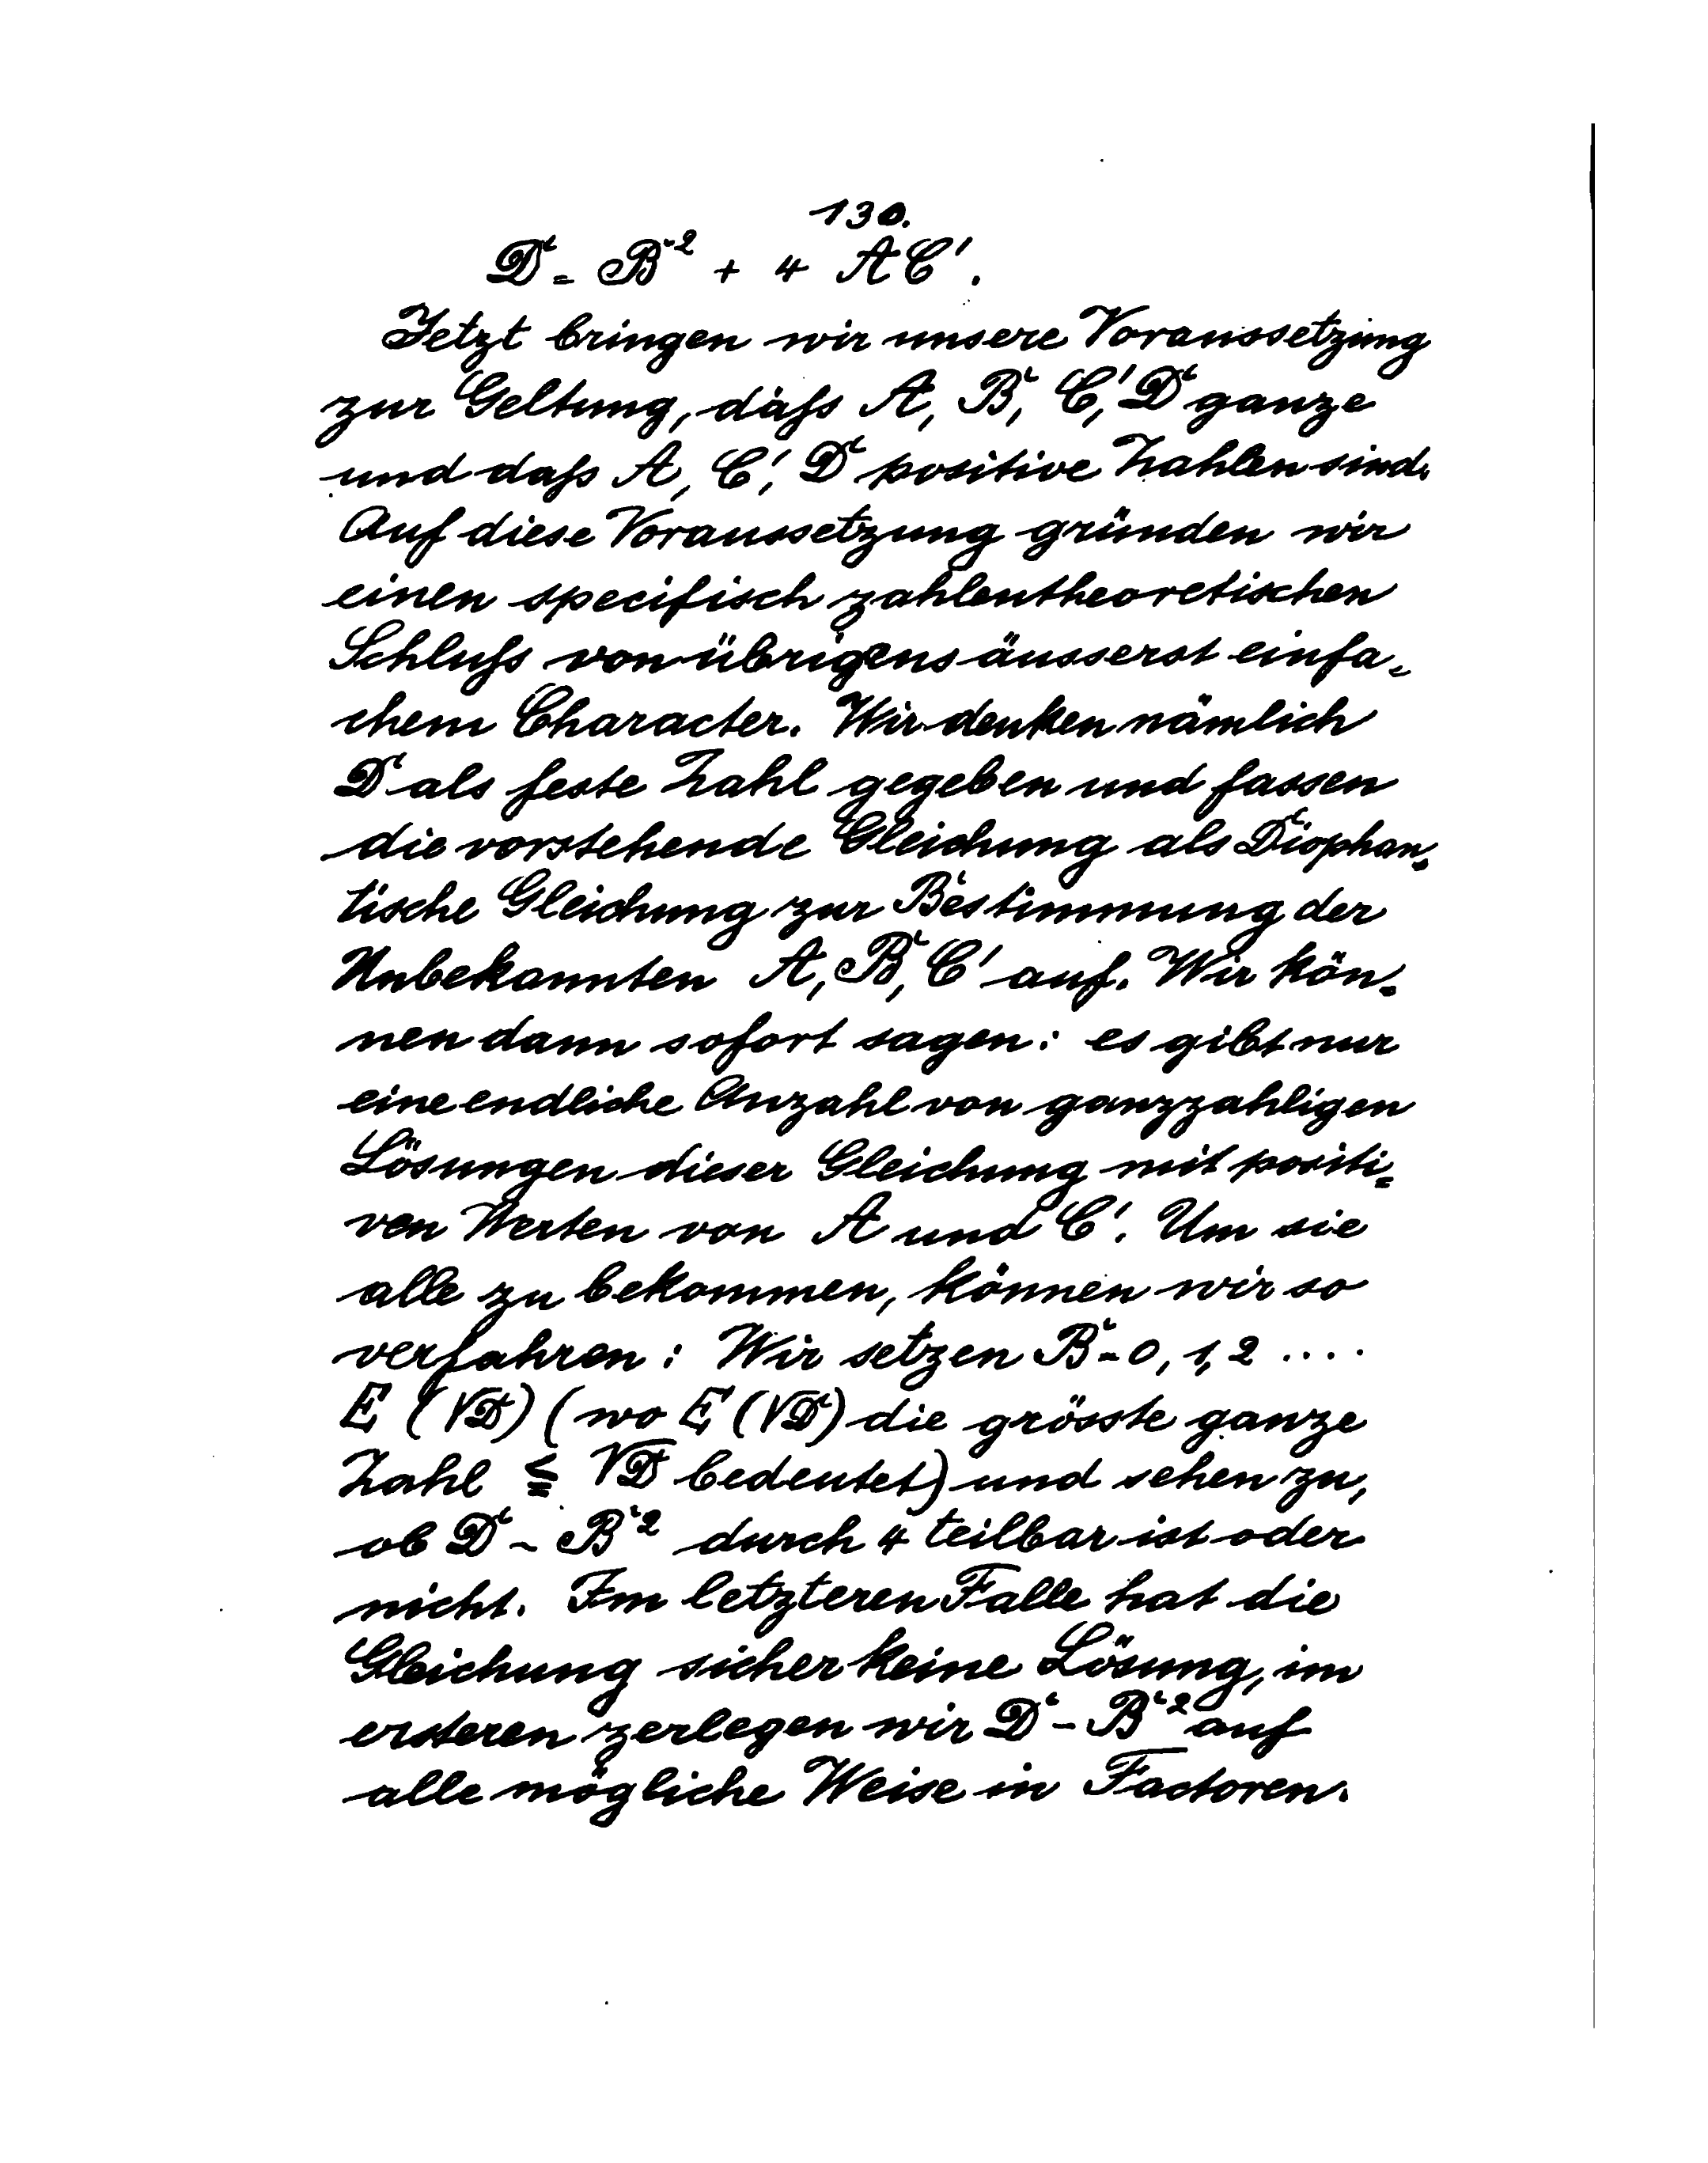 130.
D = B² + 4 AC'.
Jetzt bringen wir unsere Voraussetzung
zur Geltung, daß A, B, C', D ganze
und daß A, C', D positive Zahlen sind.
Auf diese Voraussetzung gründen wir
einen specifisch zahlentheoretischen
Schluß von übrigens äusserst einfa-
chem Character. Wir denken nämlich
D als feste Zahl gegeben und fassen
die vorstehende Gleichung als Diophan-
tische Gleichung zur Bestimmung der
Unbekannten A, B, C' auf. Wir kön-
nen dann sofort sagen: es gibt nur
eine endliche Anzahl von ganzzahligen
Lösungen dieser Gleichung mit positi-
ven Werten von A und C'. Um sie
alle zu bekommen, können wir so
verfahren: Wir setzen B = 0, 1, 2 ....
E (√D) (wo E (√D) die grösste ganze
Zahl ≦ √D bedeutet) und sehen zu,
ob D - B² durch 4 teilbar ist oder
nicht. Im letzteren Falle hat die
Gleichung sicher keine Lösung, im
ersteren zerlegen wir D - B² auf
alle mögliche Weise in Factoren.